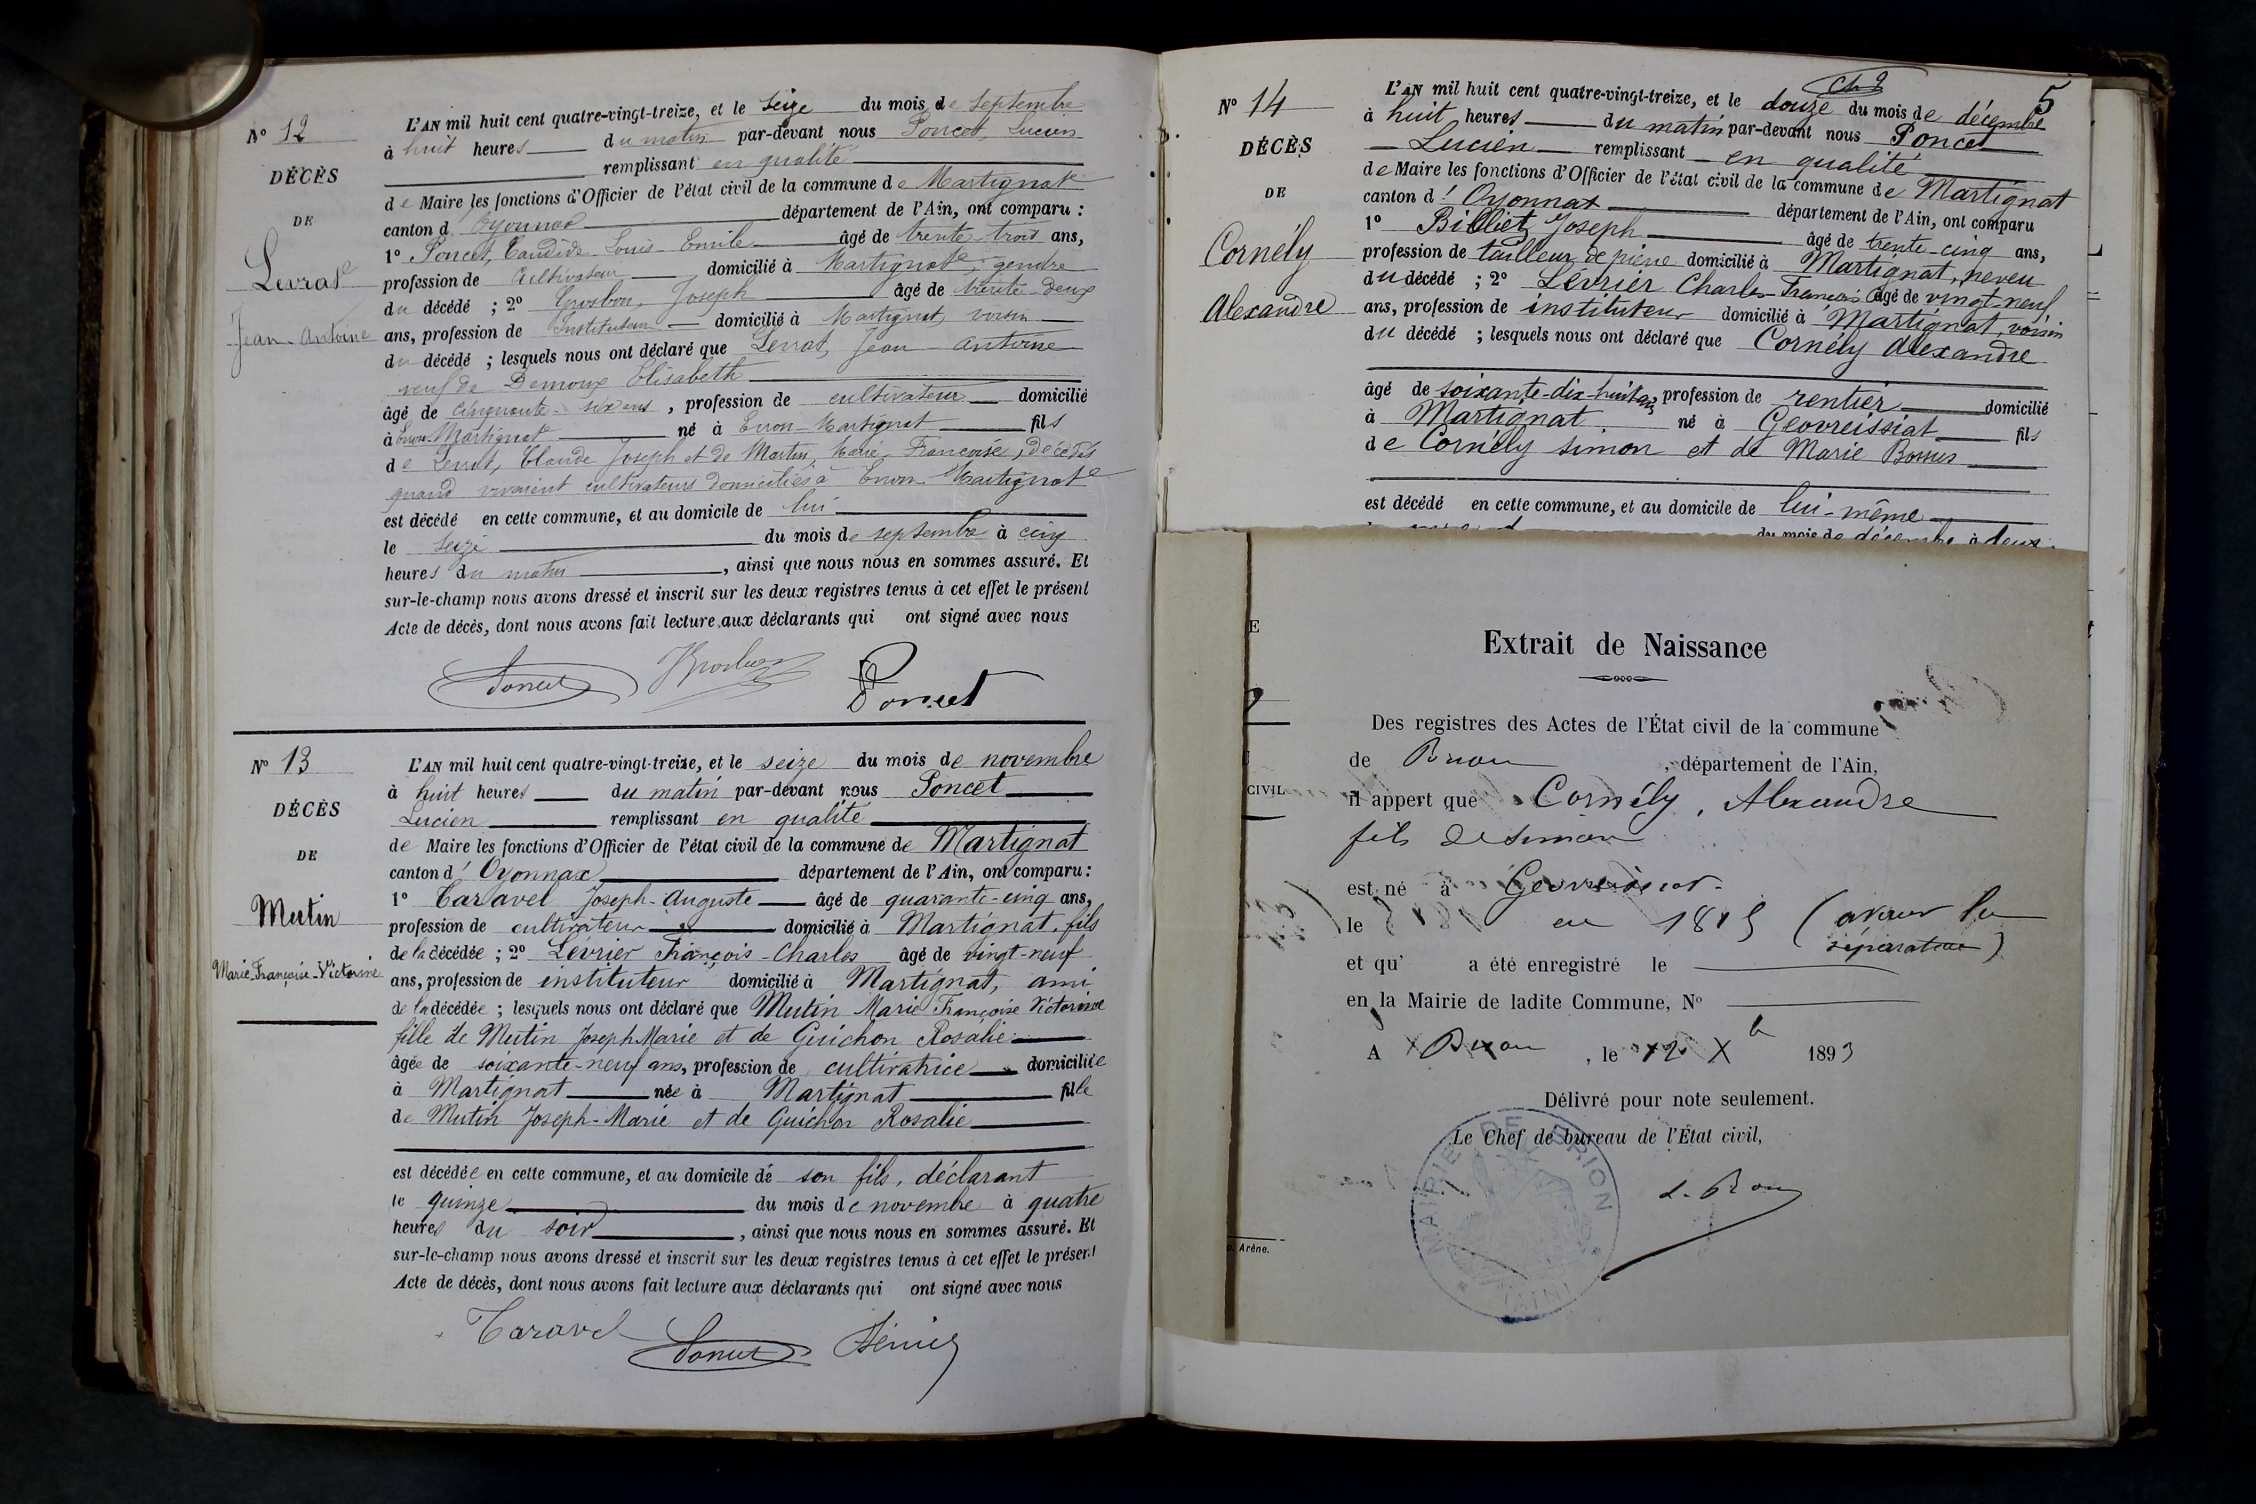 N° 12
DÉCÈS
DE
Levrat
Jean-Antoine
L'AN mil huit cent quatre-vingt-treize, et le seize du mois de septembre
à huit heures du matin par-devant nous Poncet, Lucien
remplissant en qualité
de Maire les fonctions d'Officier de l'état civil de la commune de Martignat
canton d'Oyonnax département de l'Ain, ont comparu :
1° Poncet, Candide Louis Emile âgé de trente-trois ans,
profession de cultivateur domicilié à Martignat, gendre
du décédé ; 2° Joseph âgé de trente-deux
ans, profession de Instituteur domicilié à Martignat, voisin
du décédé ; lesquels nous ont déclaré que Levrat, Jean Antoine
veuf de Demoux Elisabeth
âgé de cinquante-six ans, profession de cultivateur domicilié
à Evron-Martignat né à Evron-Martignat fils
de Levrat, Claude Joseph et de Martin, Marie Françoise, décédés
quand vivaient cultivateurs domiciliés à Evron-Martignat
est décédé en cette commune, et au domicile de lui
le seize du mois de septembre à cinq
heures du matin, ainsi que nous nous en sommes assuré. Et
sur-le-champ nous avons dressé et inscrit sur les deux registres tenus à cet effet le présent
Acte de décès, dont nous avons fait lecture aux déclarants qui ont signé avec nous
Poncet Poncet
N° 13
DÉCÈS
DE
Mutin
Marie-Françoise-Victorine
L'AN mil huit cent quatre-vingt-treize, et le seize du mois de novembre
à huit heures du matin par-devant nous Poncet
Lucien remplissant en qualité
de Maire les fonctions d'Officier de l'état civil de la commune de Martignat
canton d'Oyonnax département de l'Ain, ont comparu :
1° Taravel Joseph-Auguste âgé de quarante-cinq ans,
profession de cultivateur domicilié à Martignat, fils
de la décédée ; 2° Lévrier François-Charles âgé de vingt-neuf
ans, profession de instituteur domicilié à Martignat, ami
de la décédée ; lesquels nous ont déclaré que Mutin Marie Françoise Victorine
fille de Mutin Joseph Marie et de Guichon Rosalie
âgée de soixante-neuf ans, profession de cultivatrice domiciliée
à Martignat née à Martignat fille
de Mutin Joseph-Marie et de Guichon Rosalie
est décédée en cette commune, et au domicile de son fils, déclarant
le quinze du mois de novembre à quatre
heures du soir, ainsi que nous nous en sommes assuré. Et
sur-le-champ nous avons dressé et inscrit sur les deux registres tenus à cet effet le présent
Acte de décès, dont nous avons fait lecture aux déclarants qui ont signé avec nous
Taravel Poncet Lévrier
5
N° 14
DÉCÈS
DE
Cornély
Alexandre
L'AN mil huit cent quatre-vingt-treize, et le douze du mois de décembre
à huit heures du matin par-devant nous Poncet
Lucien remplissant en qualité
de Maire les fonctions d'Officier de l'état civil de la commune de Martignat
canton d'Oyonnax département de l'Ain, ont comparu
1° Billiet Joseph âgé de trente-cinq ans,
profession de tailleur de pierre domicilié à Martignat, neveu
du décédé ; 2° Lévrier Charles-François âgé de vingt-neuf
ans, profession de instituteur domicilié à Martignat, voisin
du décédé ; lesquels nous ont déclaré que Cornély Alexandre
âgé de soixante-dix-huit ans, profession de rentier domicilié
à Martignat né à Géovreissiat fils
de Cornély Simon et de Marie
est décédé en cette commune, et au domicile de lui-même
du mois de décembre à deux
Extrait de Naissance
Des registres des Actes de l'État civil de la commune
de Brion, département de l'Ain,
il appert que Cornély, Alexandre
fils de Simon
est né à Géovreissiat
le en 1815 (avant la
séparation)
et qu' a été enregistré le
en la Mairie de ladite Commune, N°
A Brion, le 12 Xb 1893
Délivré pour note seulement.
Le Chef de bureau de l'État civil,
MAIRIE DE BRION
(AIN)
CIVIL
Arène.